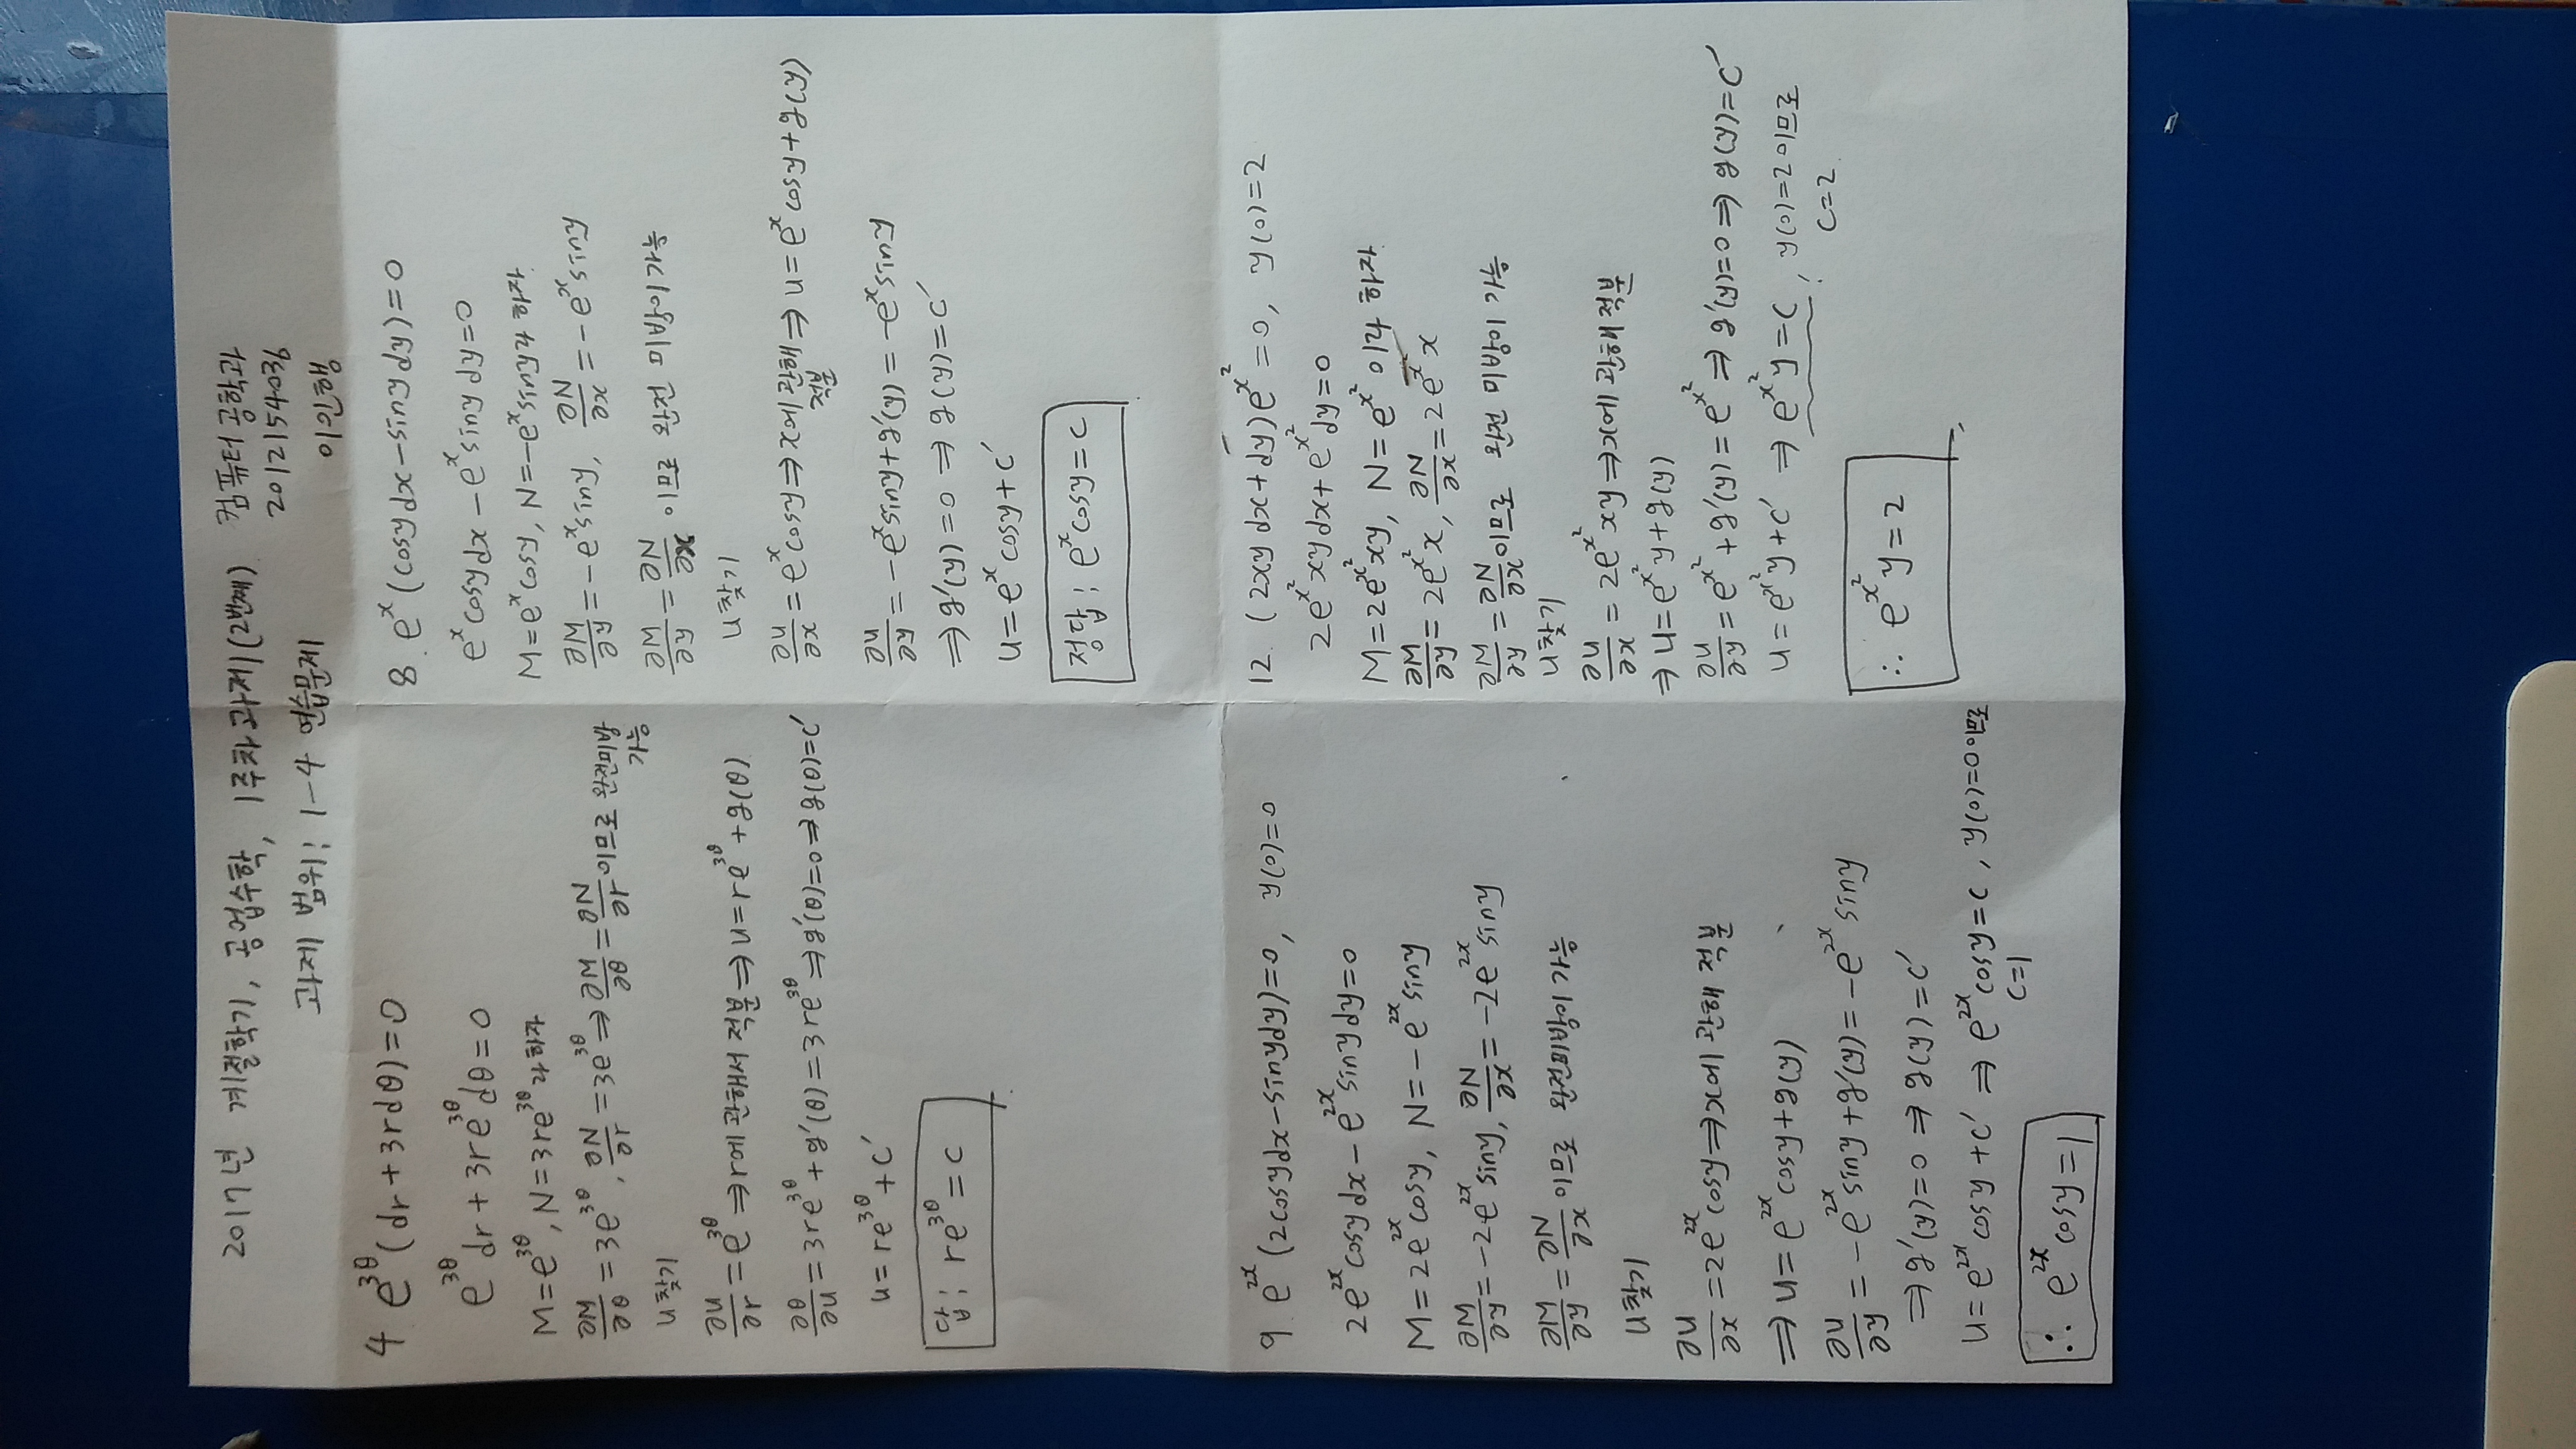 2017년 계절학기, 공업수학, 1주차과제(2번째) 컴퓨터공학과
2012154036
과제 범위: 1-4 연습문제
이인행
4 e^{3θ}(dr+3rdθ)=0
e^{3θ}dr+3re^{3θ}dθ=0
M=e^{3θ}, N=3re^{3θ}라하자
∂M/∂θ=3e^{3θ}, ∂N/∂r=3e^{3θ}⇒∂M/∂θ=∂N/∂r이므로 완전미방
가능
u찾기
∂u/∂r=e^{3θ}⇒r에관해서 적분⇒u=re^{3θ}+g(θ)
∂θ/∂u=3re^{3θ}+g'(θ)=3re^{3θ}⇒g'(θ)=0⇒g(θ)=c'
u=re^{3θ}+c'
답: re^{3θ}=c
8. e^x(cosydx-sinydy)=0
e^xcosydx-e^xsinydy=0
M=e^xcosy, N=-e^xsiny라 하자
∂M/∂y=-e^xsiny, ∂N/∂x=-e^xsiny
∂M/∂y=∂N/∂x 이므로 완전 미방이 가능
u찾기
∂u/∂x=e^xcosy⇒x에 관해⇒u=e^xcosy+g(y)
적분
∂u/∂y=-e^xsiny+g'(y)=-e^xsiny
⇒g'(y)=0⇒g(y)=c'
u=e^xcosy+c'
정답: e^xcosy=c
9. e^{2x}(2cosydx-sinydy)=0, y(0)=0
2e^{2x}cosydx-e^{2x}sinydy=0
M=2e^{2x}cosy, N=-e^{2x}siny
∂M/∂y=-2e^{2x}siny, ∂N/∂x=-2e^{2x}siny
∂M/∂y=∂N/∂x 이므로 완전미방이 가능
u찾기
∂u/∂x=2e^{2x}cosy⇒x에 관해 적분
⇒u=e^{2x}cosy+g(y)
∂u/∂y=-e^{2x}siny+g'(y)=-e^{2x}siny
⇒g'(y)=0⇒g(y)=c'
u=e^{2x}cosy+c'⇒e^{2x}cosy=c, y(0)=0이므로
c=1
∴ e^{2x}cosy=1
12. (2xydx+dy)e^{x^2}=0, y(0)=2
2e^{x^2}xydx+e^{x^2}dy=0
M=2e^{x^2}xy, N=e^{x^2} 이라 하자
∂M/∂y=2e^{x^2}x, ∂N/∂x=2e^{x^2}x
∂M/∂y=∂N/∂x이므로 완전 미방이 가능
u찾기
∂u/∂x=2e^{x^2}xy⇒x에 관해 적분
⇒u=e^{x^2}y+g(y)
∂u/∂y=e^{x^2}+g'(y)=e^{x^2}⇒g'(y)=0⇒g(y)=c'
u=e^{x^2}y+c'⇒e^{x^2}y=c, y(0)=2이므로
c=2
∴ e^{x^2}y=2